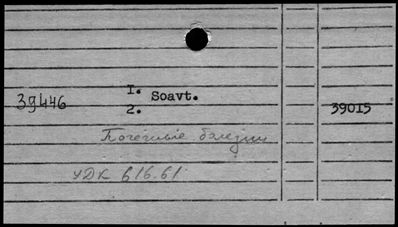 I.
39446 Soavt. 39015
2.
Почечные болезни
УДК 616.61